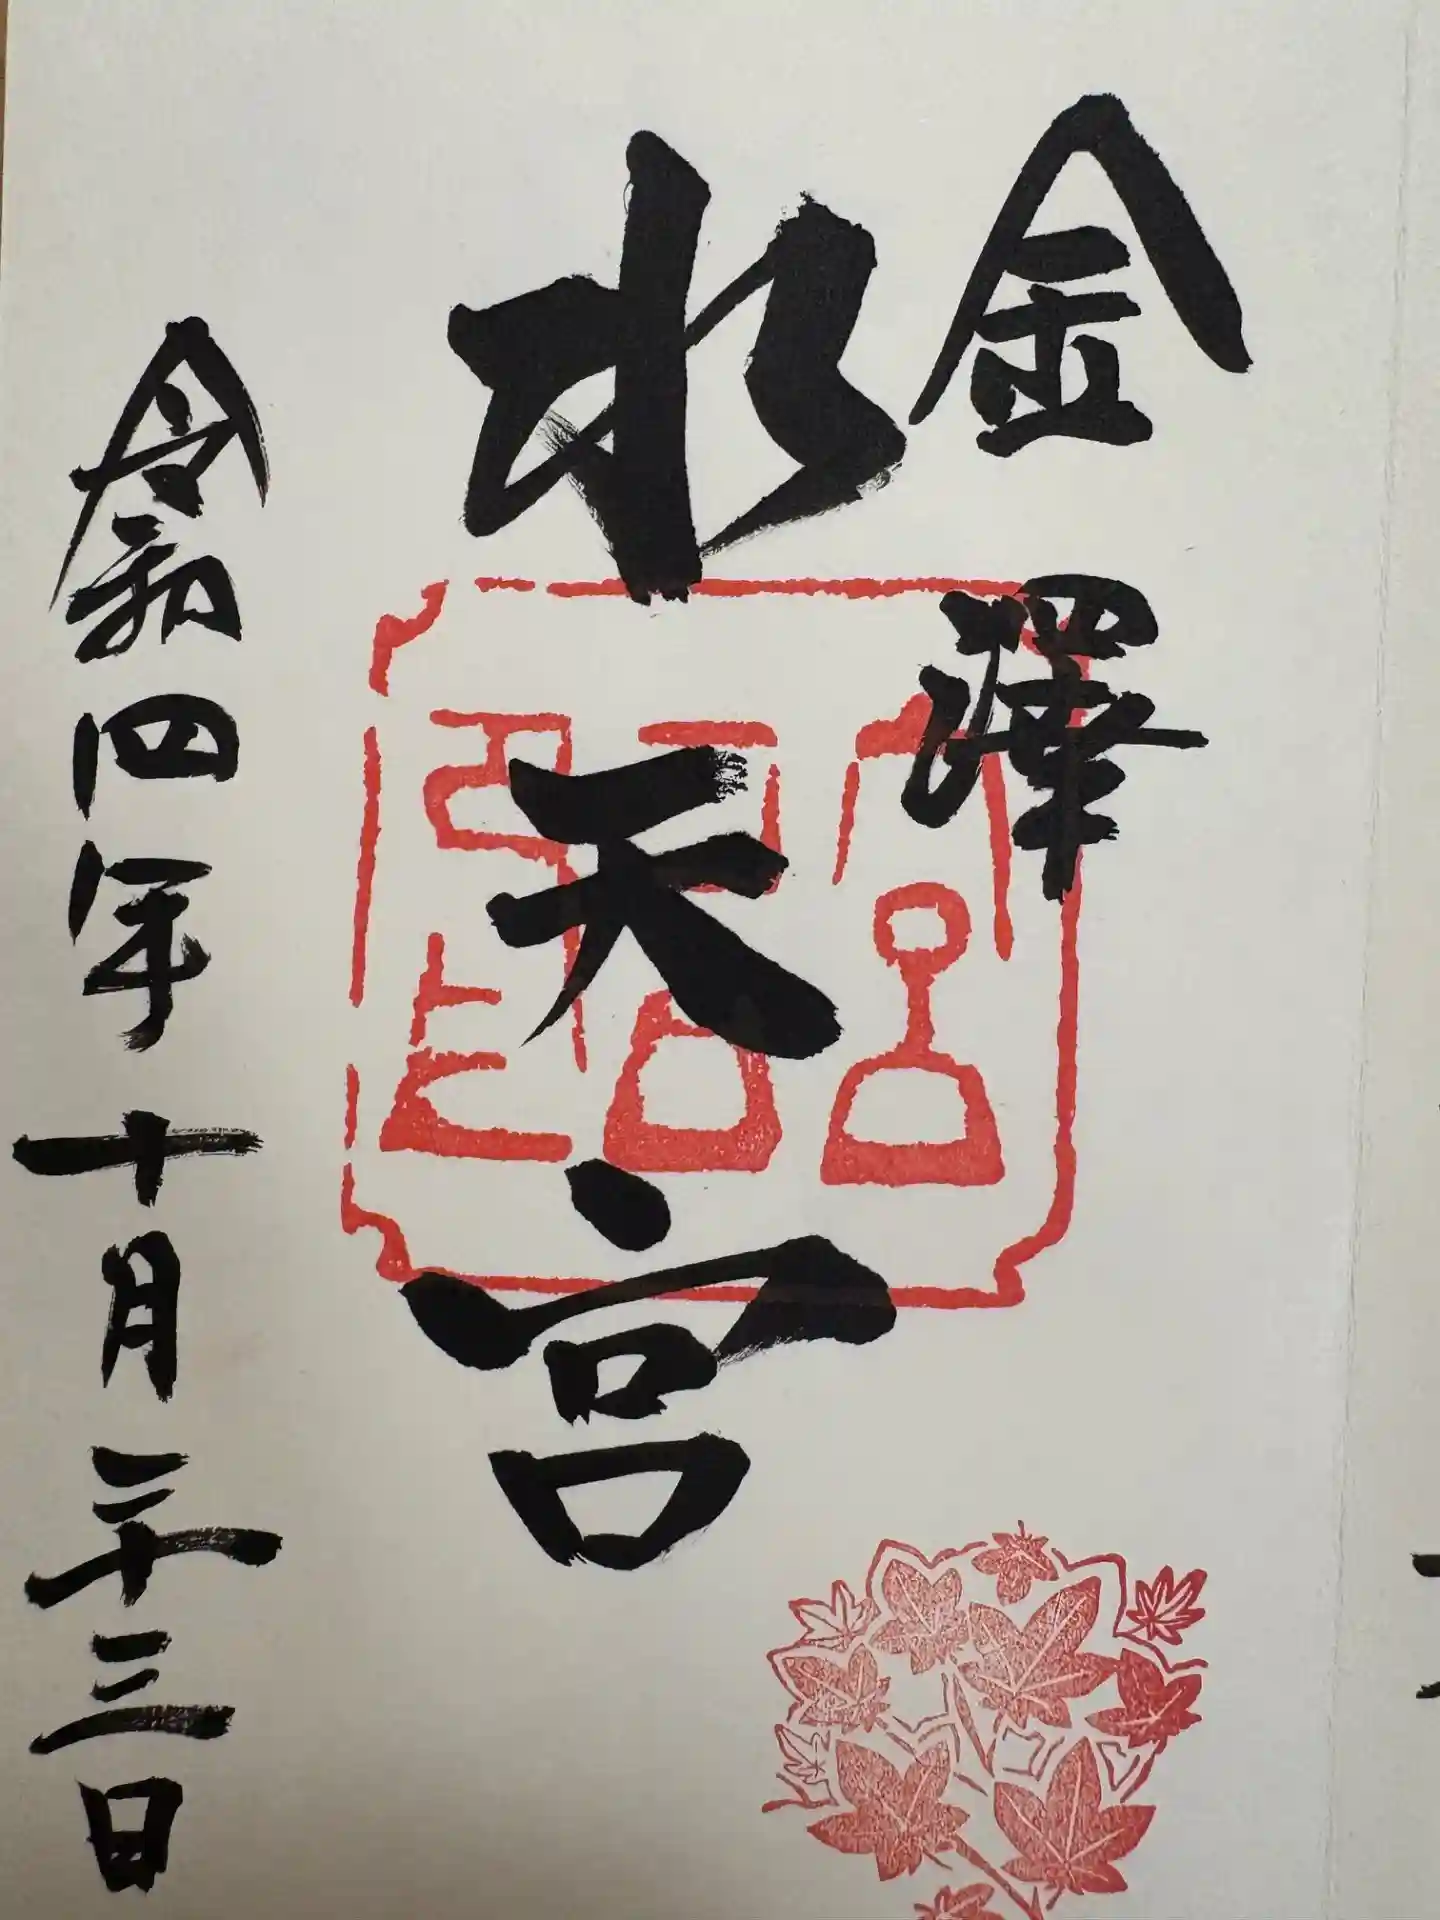 金澤
水天宮
令和四年十月二十三日